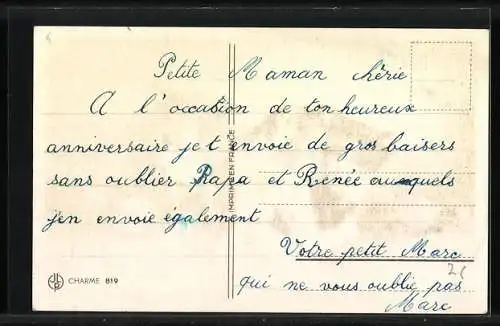 Petite Maman chérie
A l'occation de ton heureux
anniversaire je t envoie de gros baisers
sans oublier Papa et Renée auxquels
j'en envoie également
Votre petit Marc
qui ne vous oublie pas
Marc
CHARME 819
IMPRIMÉ EN FRANCE